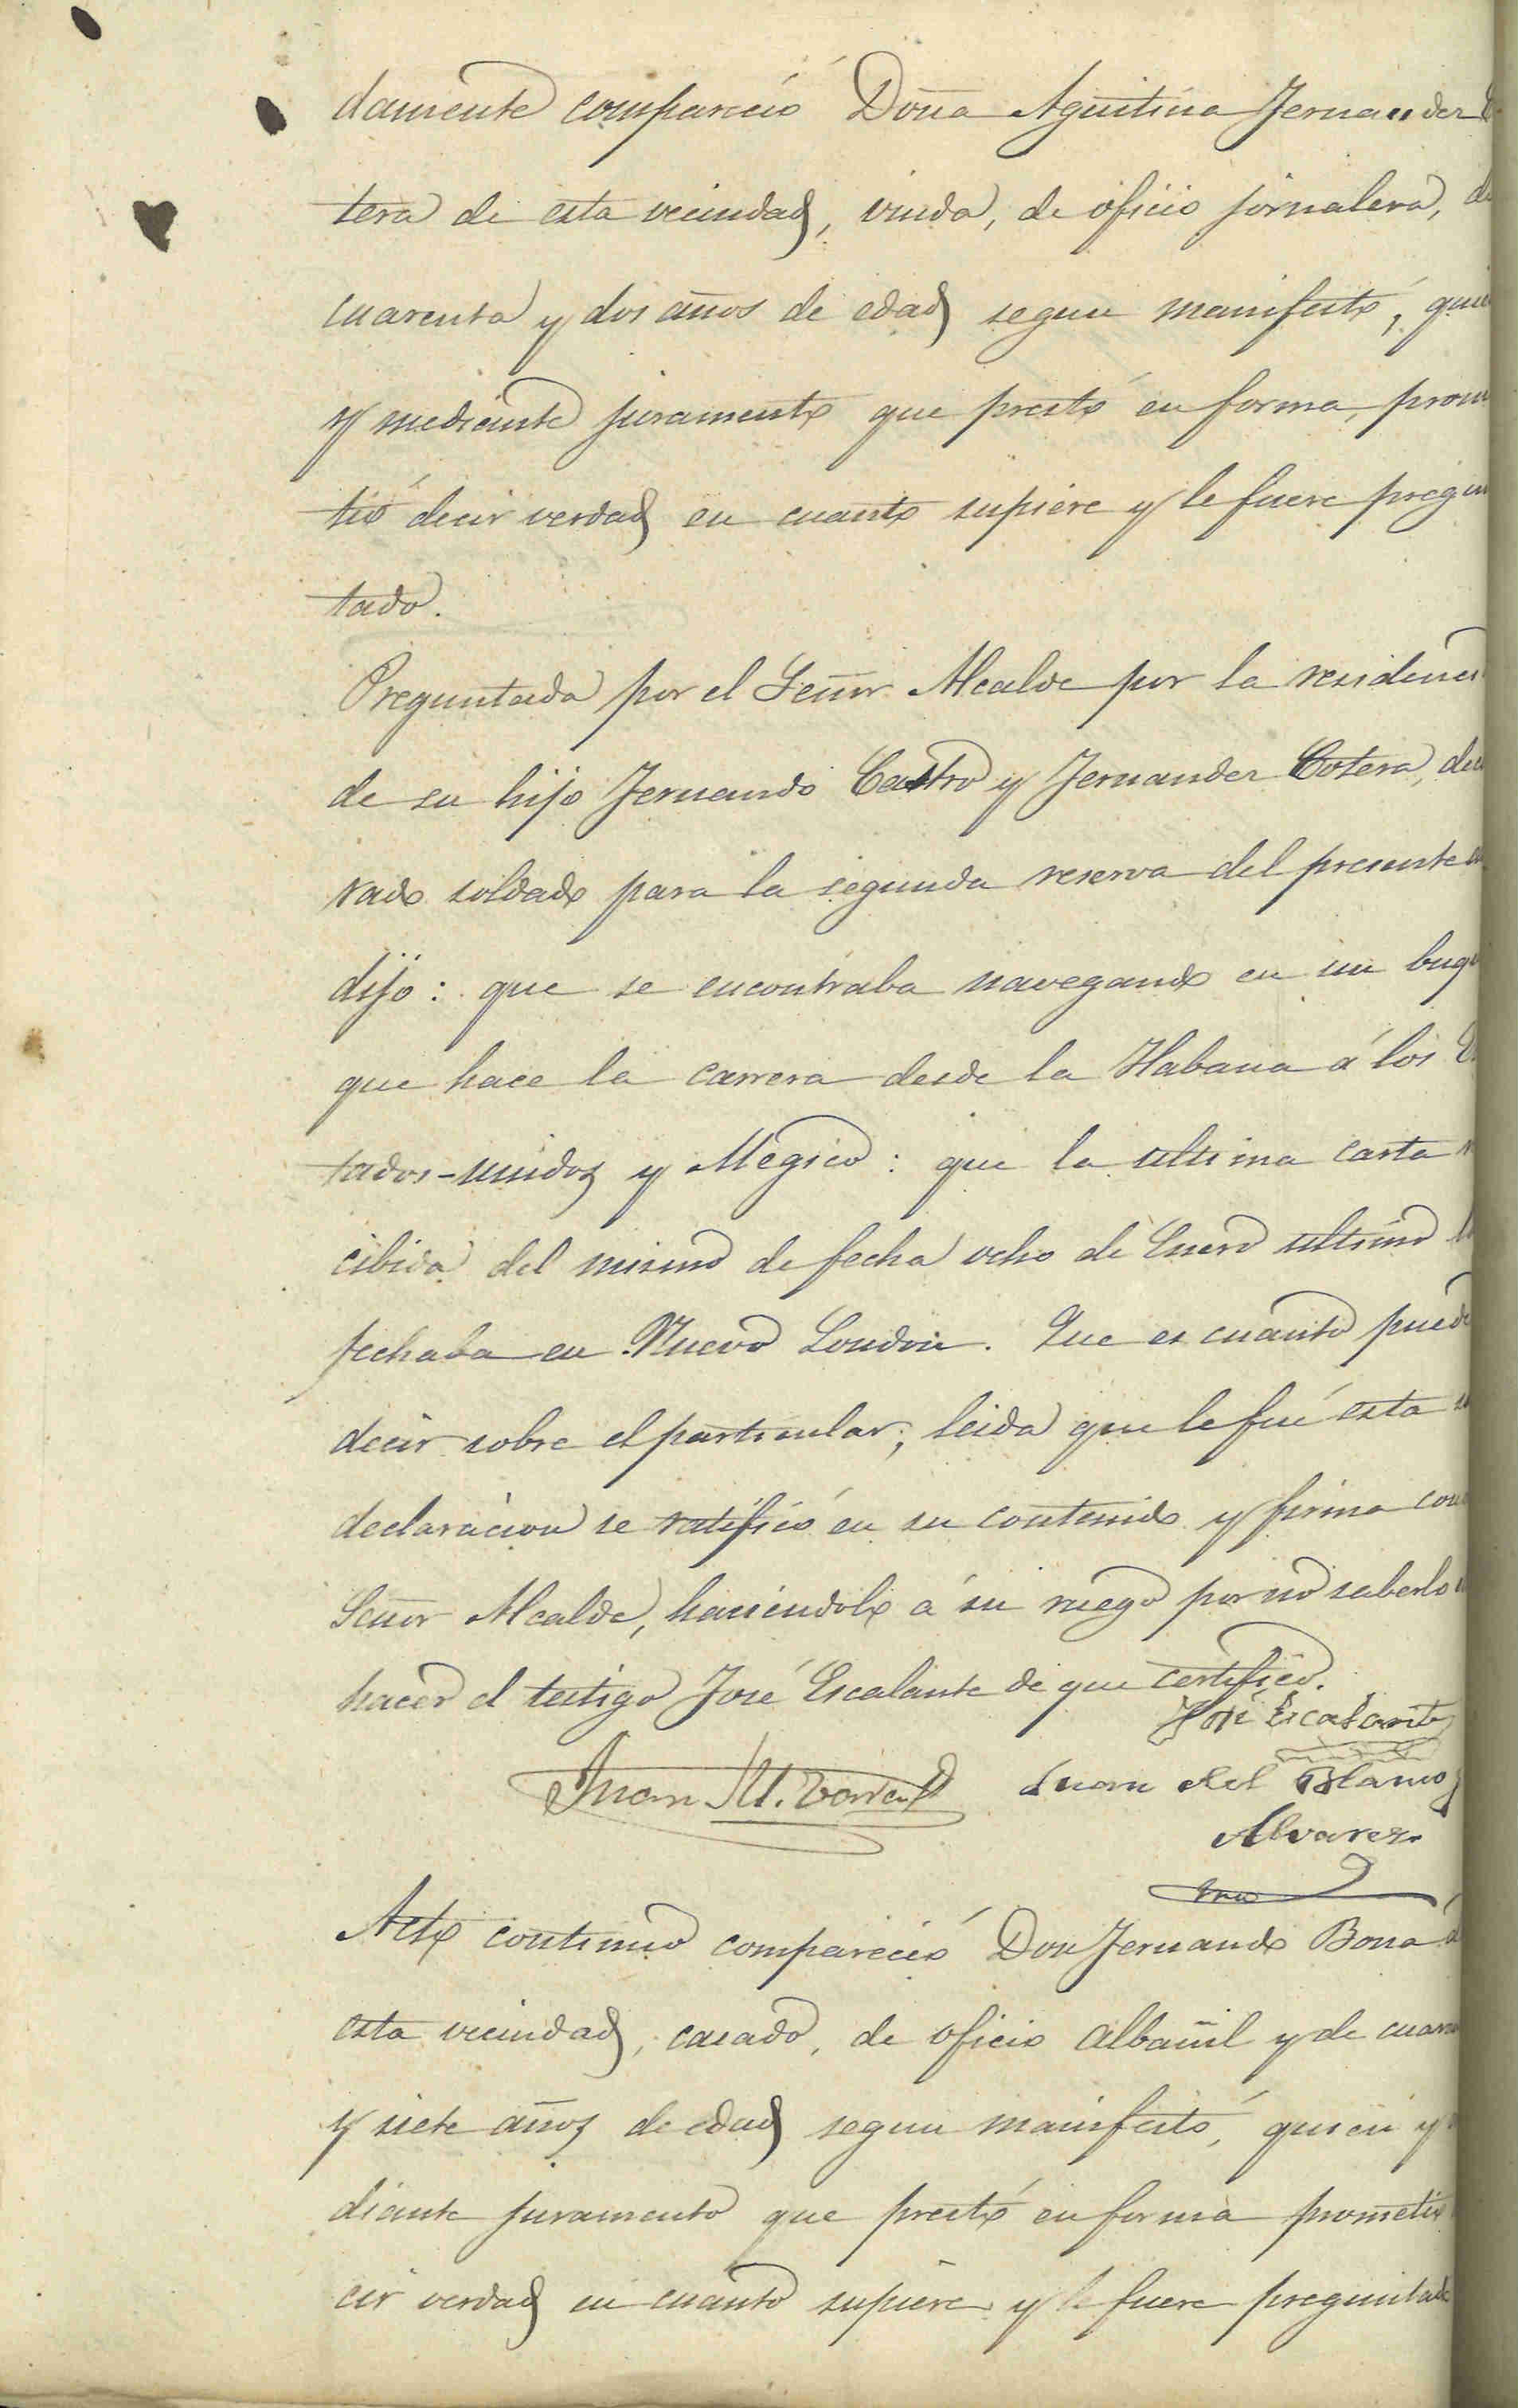 damente compareció Doña Agustina Fernandez
tera de esta vecindad, viuda, de oficio jornalera, de
cuarenta y dos años de edad segun manifestó, quie
y mediante juramento que prestó en forma, prom
tió decir verdad en cuanto supiere y le fuere pregun
tado.
Preguntada por el Señor Alcalde por la residenci
de su hijo Fernando Castro y Fernandez Cotera, decl
rado soldado para la segunda reserva del presente
dijo: que se encontraba navegando en un buqu
que hace la carrera desde la Habana á los Es
tados-unidos y Mégico: que la ultima carta re
cibida del mismo de fecha ocho de Enero ultimo
fechaba en Nuevo London. Que es cuanto puede
decir sobre el particular; leida que le fué esta su
declaracion se ratificó en su contenido y firma con
Señor Alcalde, haciendolo á su ruego por no saberlo
hacer el testigo José Escalante de que certifico.
José Escalante
Juan M.
Juan del Blanco
Alvarez
Acto continuo compareció Don Fernando Bona d
esta vecindad, casado, de oficio albañil y de cuaren
y siete años de edad segun manifestó, quien y
diante juramento que prestó en forma prometió
cir verdad en cuanto supiere y le fuere preguntado